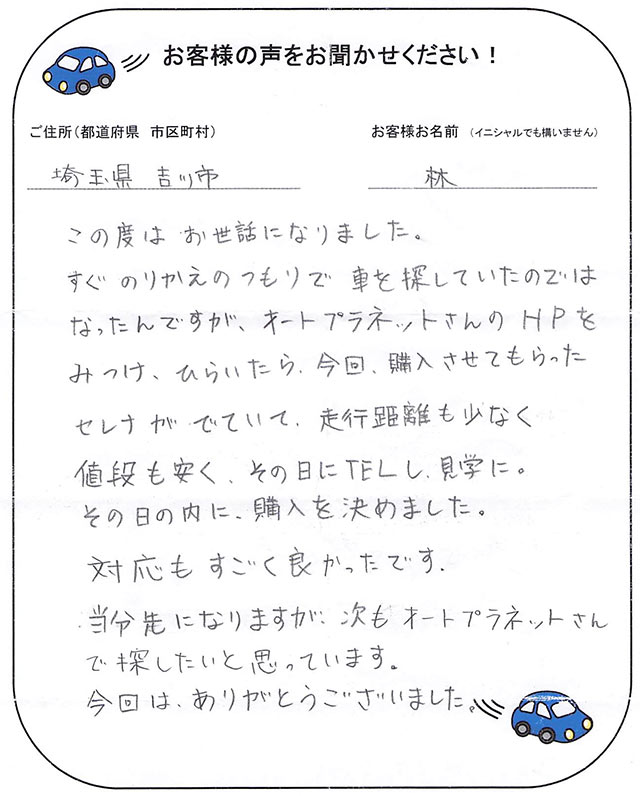 お客様の声をお聞かせください！
ご住所（都道府県　市区町村）
お客様お名前　（イニシャルでも構いません）
埼玉県　吉川市
林
この度は お世話になりました。
すぐ のりかえのつもりで 車を探していたのでは
なったんですが、オートプラネットさんの HPを
みつけ、ひらいたら、今回、購入させてもらった
セレナが でていて、走行距離も少なく
値段も安く、その日にTELし、見学に。
その日の内に、購入を決めました。
対応も すごく良かったです.
当分先になりますが、次も オートプラネットさん
で探したいと思っています。
今回は、ありがとうございました。